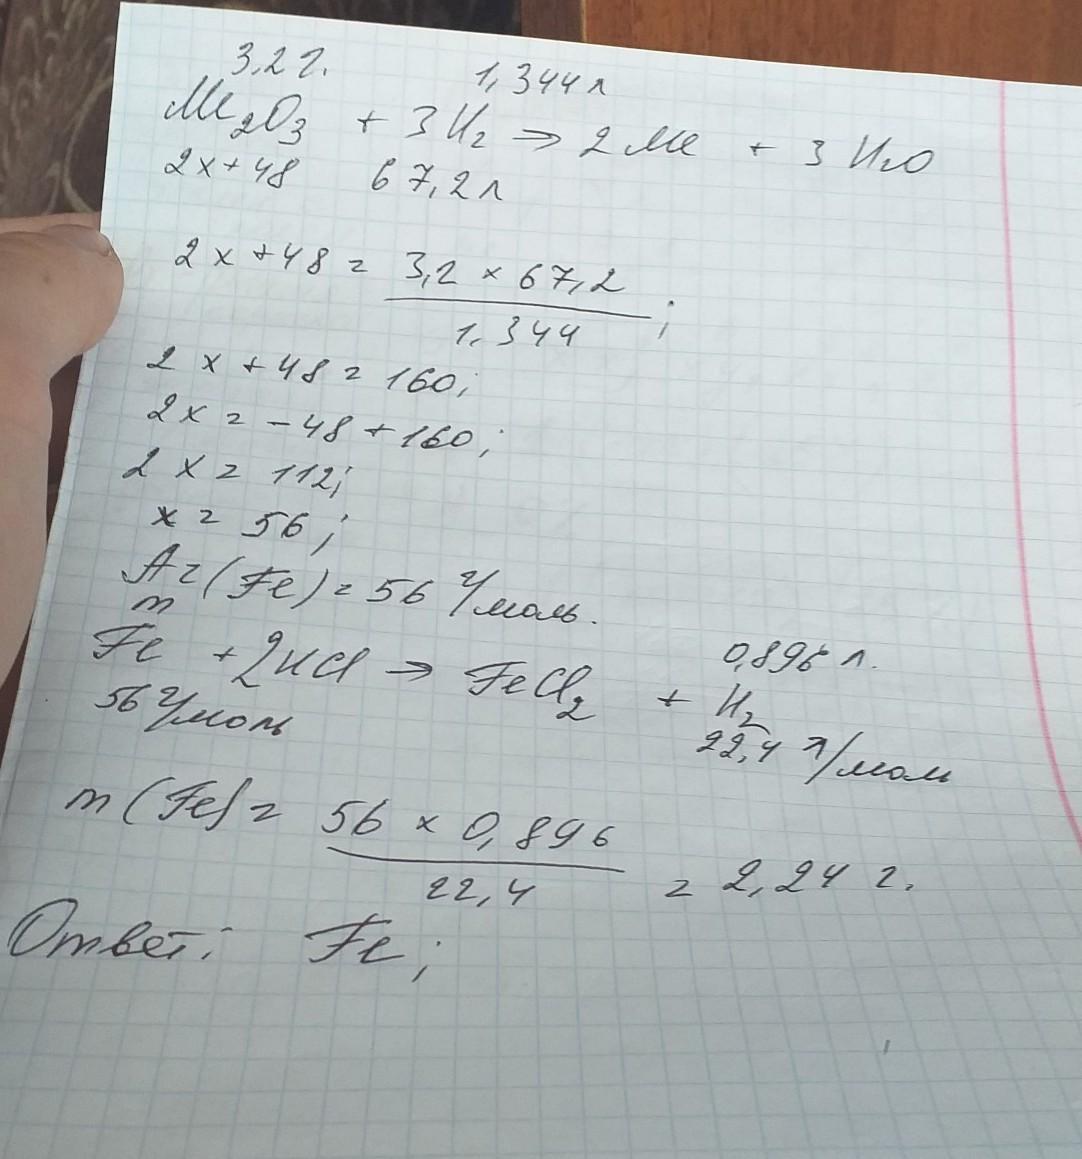 3,2 г. 1,344 л
Me₂O₃ + 3H₂ ⇒ 2Me + 3H₂O
2x+48 67,2 л
2x+48 = 3,2 × 67,2 / 1.344 ;
2x+48 = 160;
2x = -48+160;
2x = 112;
x = 56;
Az(Fe) = 56 г/моль.
m 0,896 л.
Fe + 2HCl → FeCl₂ + H₂
56 г/моль 22,4 л/моль
m(Fe) = 56 × 0,896 / 22,4 = 2,24 г.
Ответ: Fe;